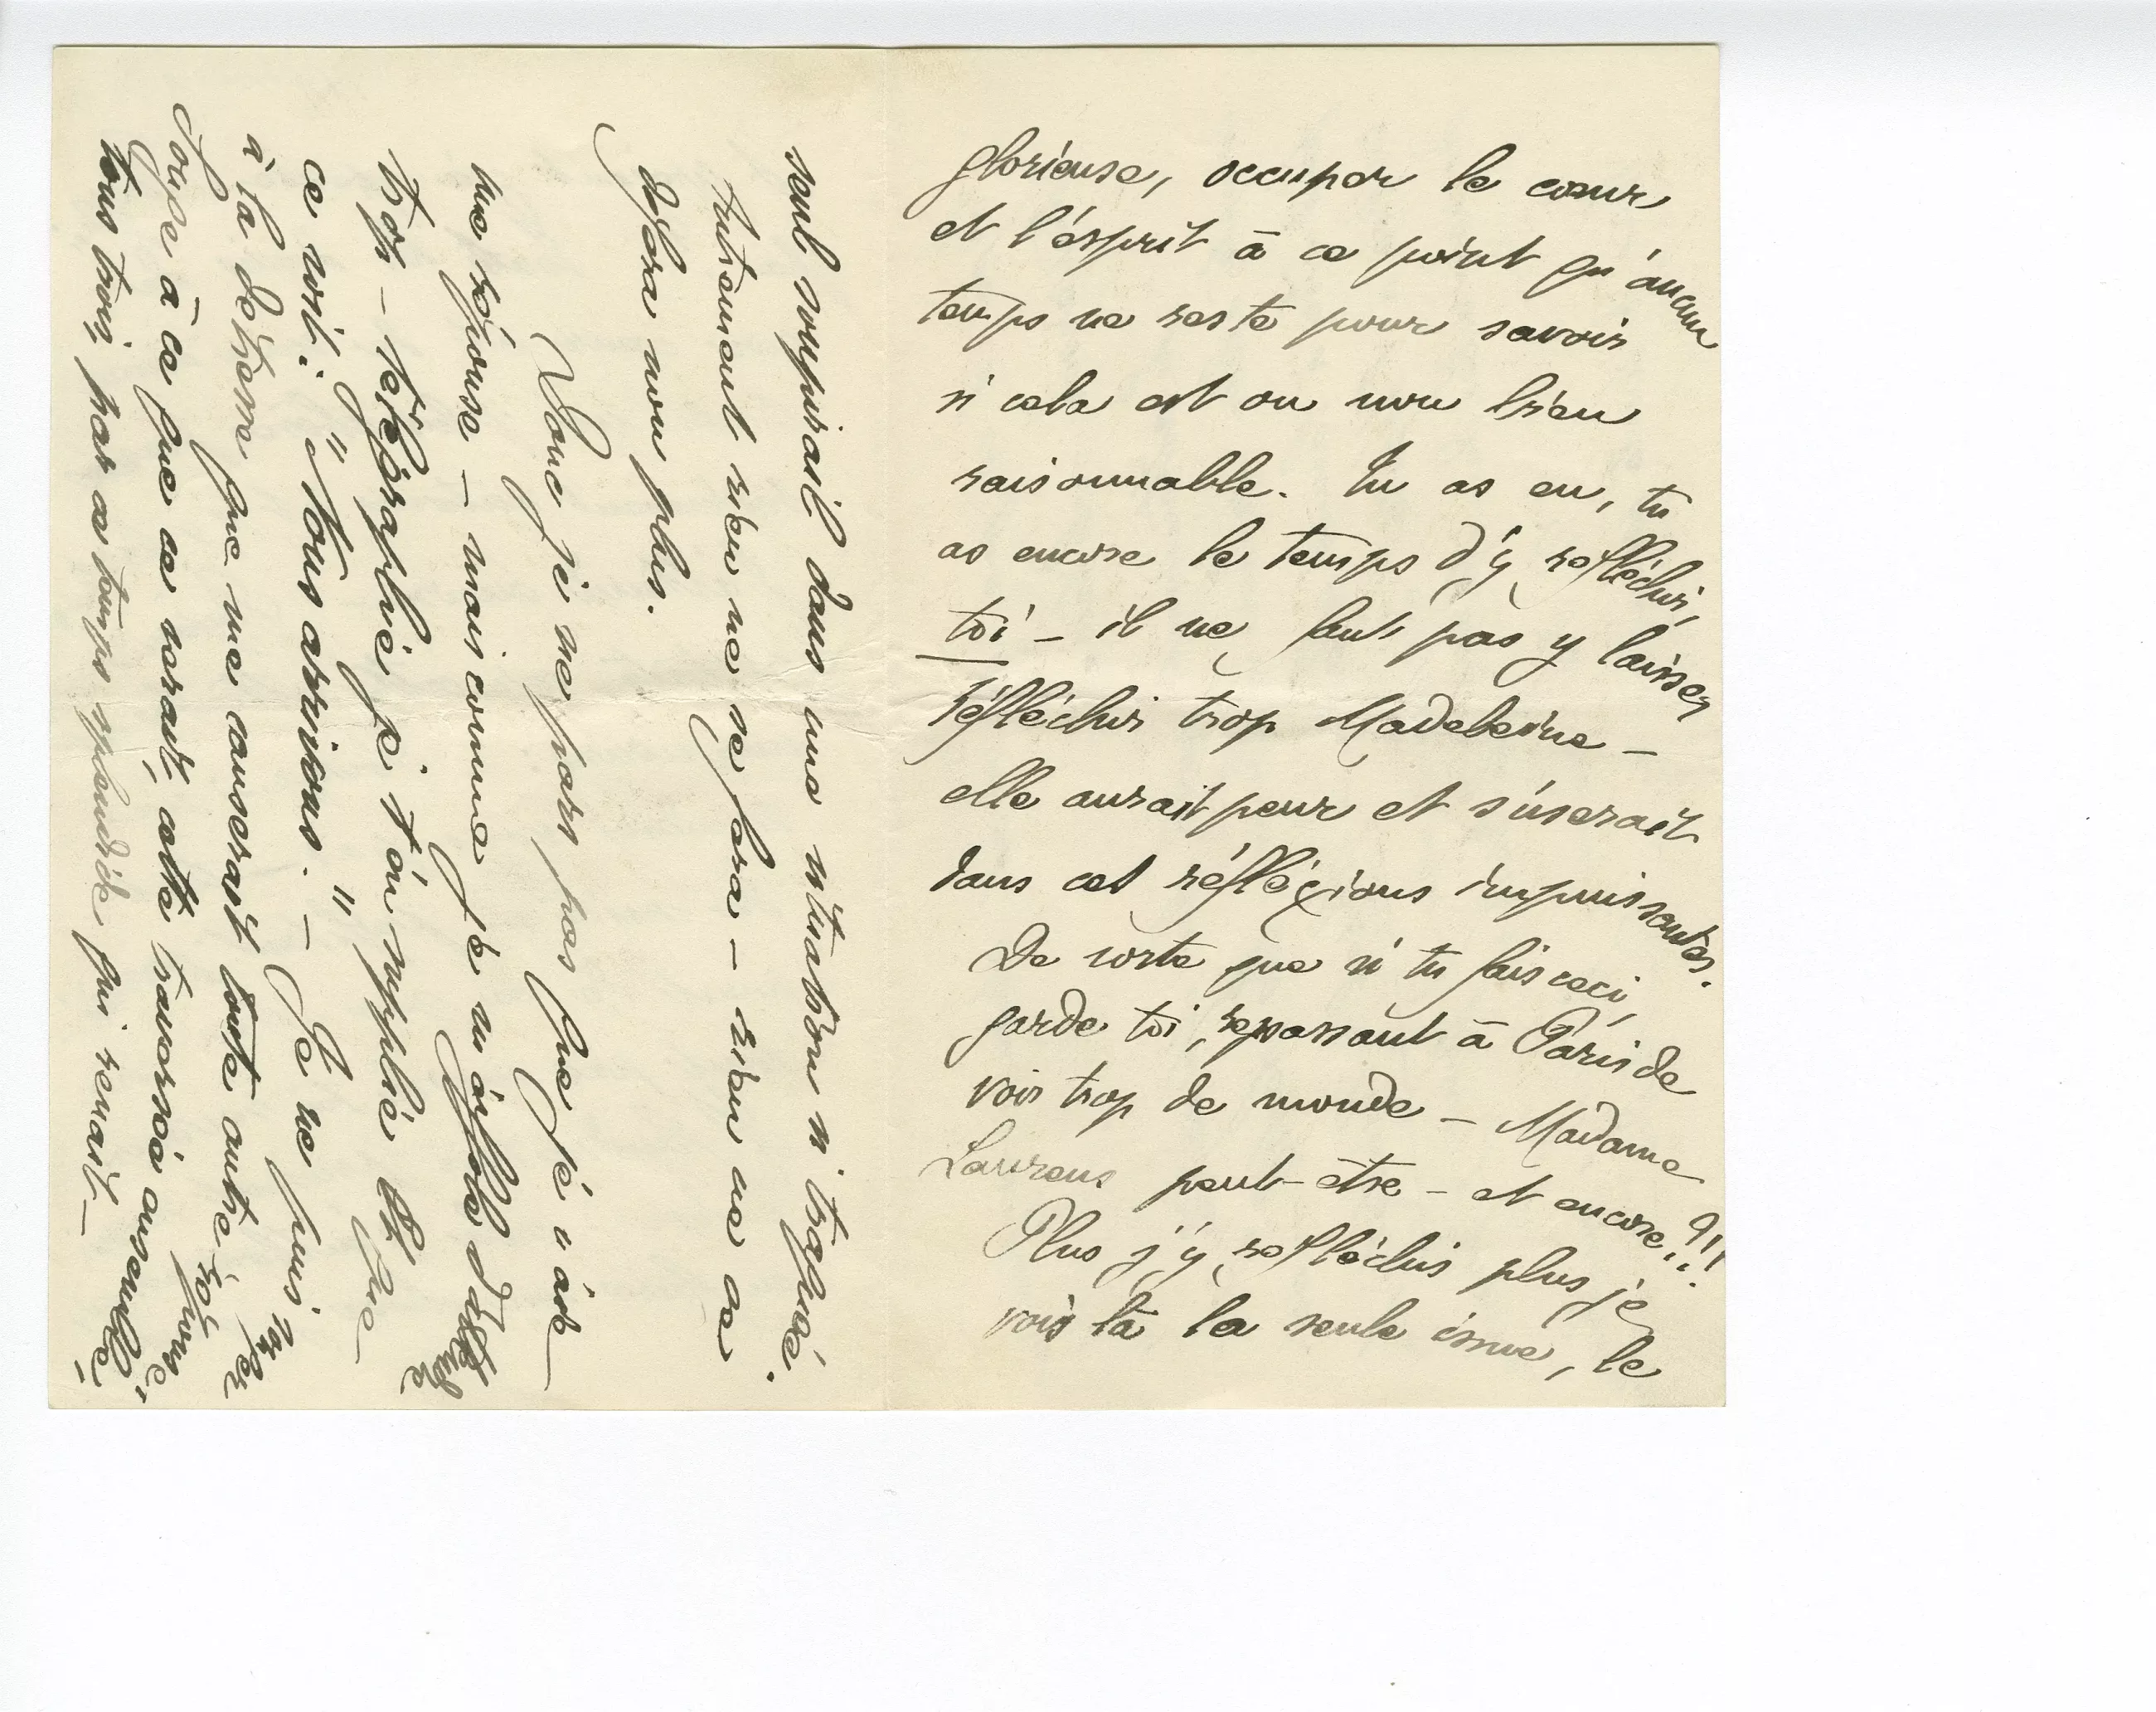 glorieuse, occuper le cœur
et l'esprit à ce point qu'aucun
temps ne reste pour savoir
si cela est ou non bien
raisonnable. Tu as eu, tu
as encore le temps d'y réfléchir,
toi – il ne faut pas y laisser
réfléchir trop Madeleine –
elle aurait peur et s'userait
dans ces réfléxions impuissantes.
De sorte que si tu fais ceci,
garde toi, repassant à Paris de
voir trop de monde – Madame
Laurens peut-être – et encore?!!
Plus j'y refléchis plus je
vois là la seule issue, le
seul soupirail dans une situation si tragique.
Autrement rien ne se fera – rien ne se
défera non plus.
Donc je ne pars pas que je n'aie
une réponse – mais comme je m'affole d'attendre
trop – télégraphie je t'en supplie Et que
ce soit: "Nous arrivons." – Je ne puis songer
à la détresse que me causerait toute autre réponse;
Songe à ce que ce serait, cette traversée ensemble,
tous trois, par ce temps splendide qui renait –